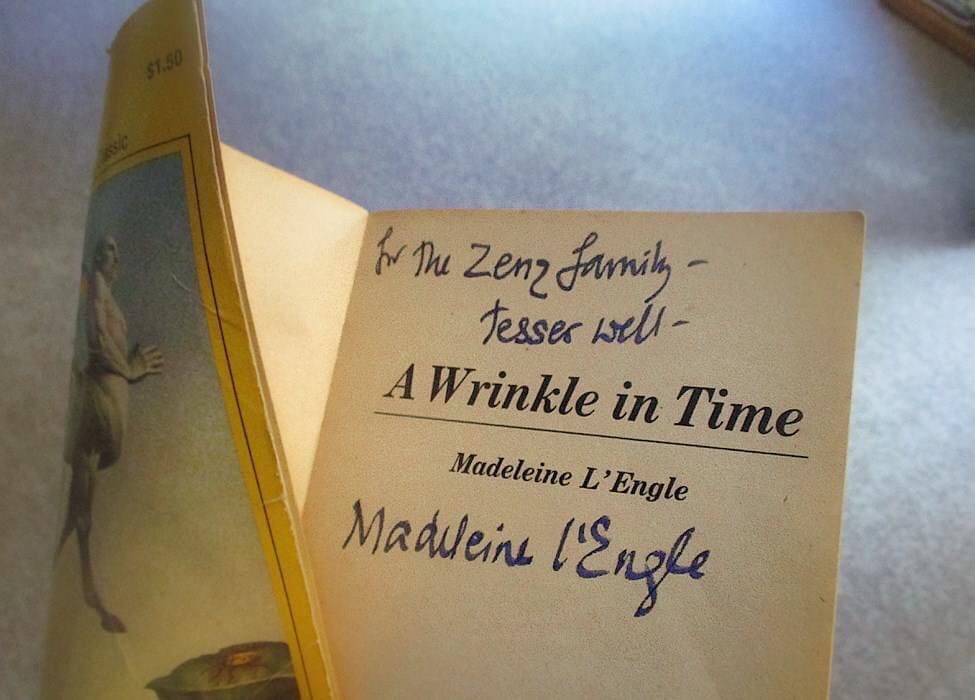 $1.50
for the Zenz family –
tesser well –
A Wrinkle in Time
Madeleine L'Engle
Madeleine l'Engle